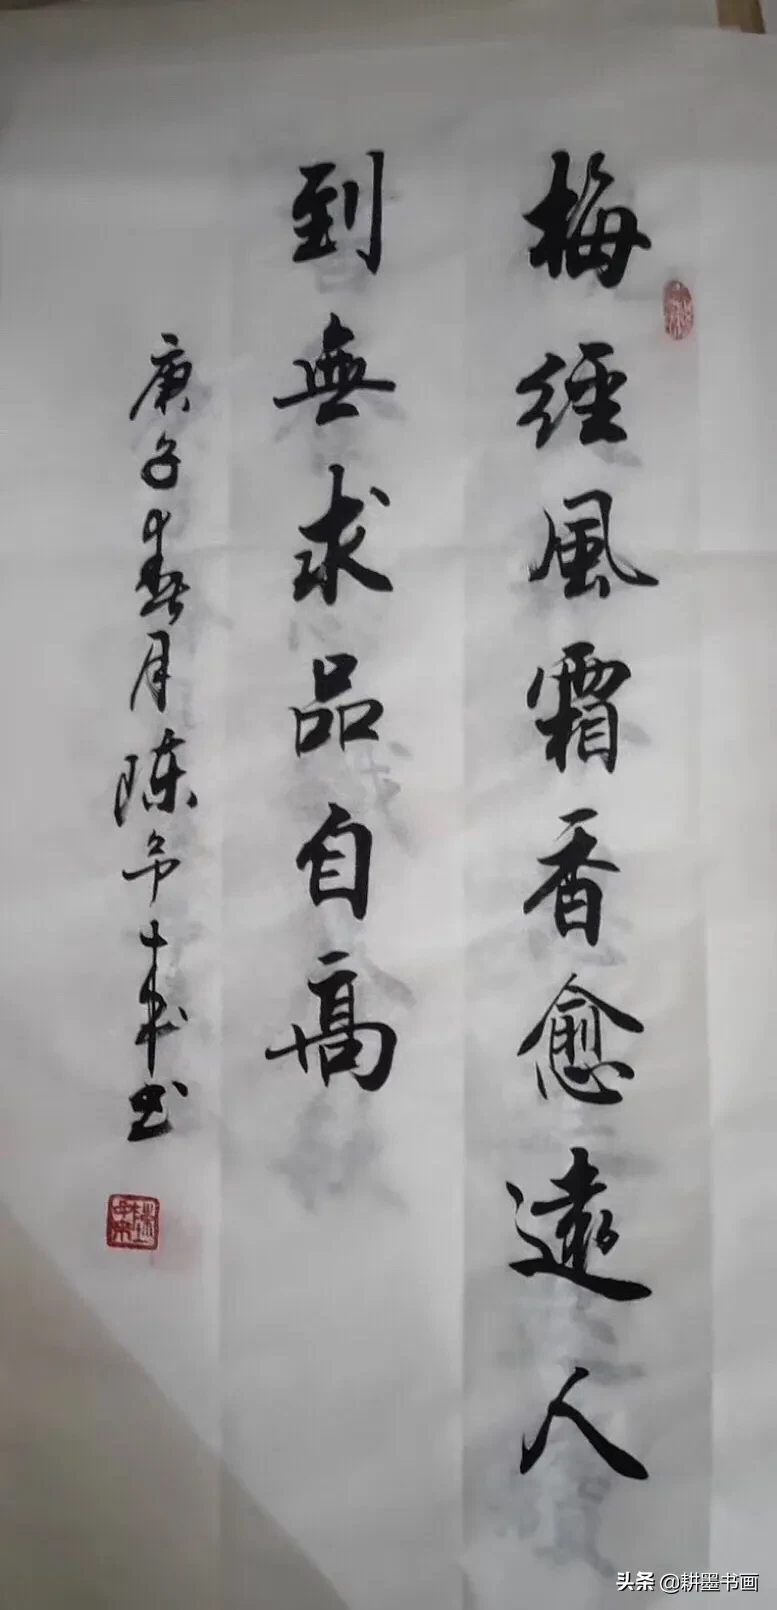 梅經風霜香愈遠人
到無求品自高
庚子春月陳令十來书
头条 @耕墨书画